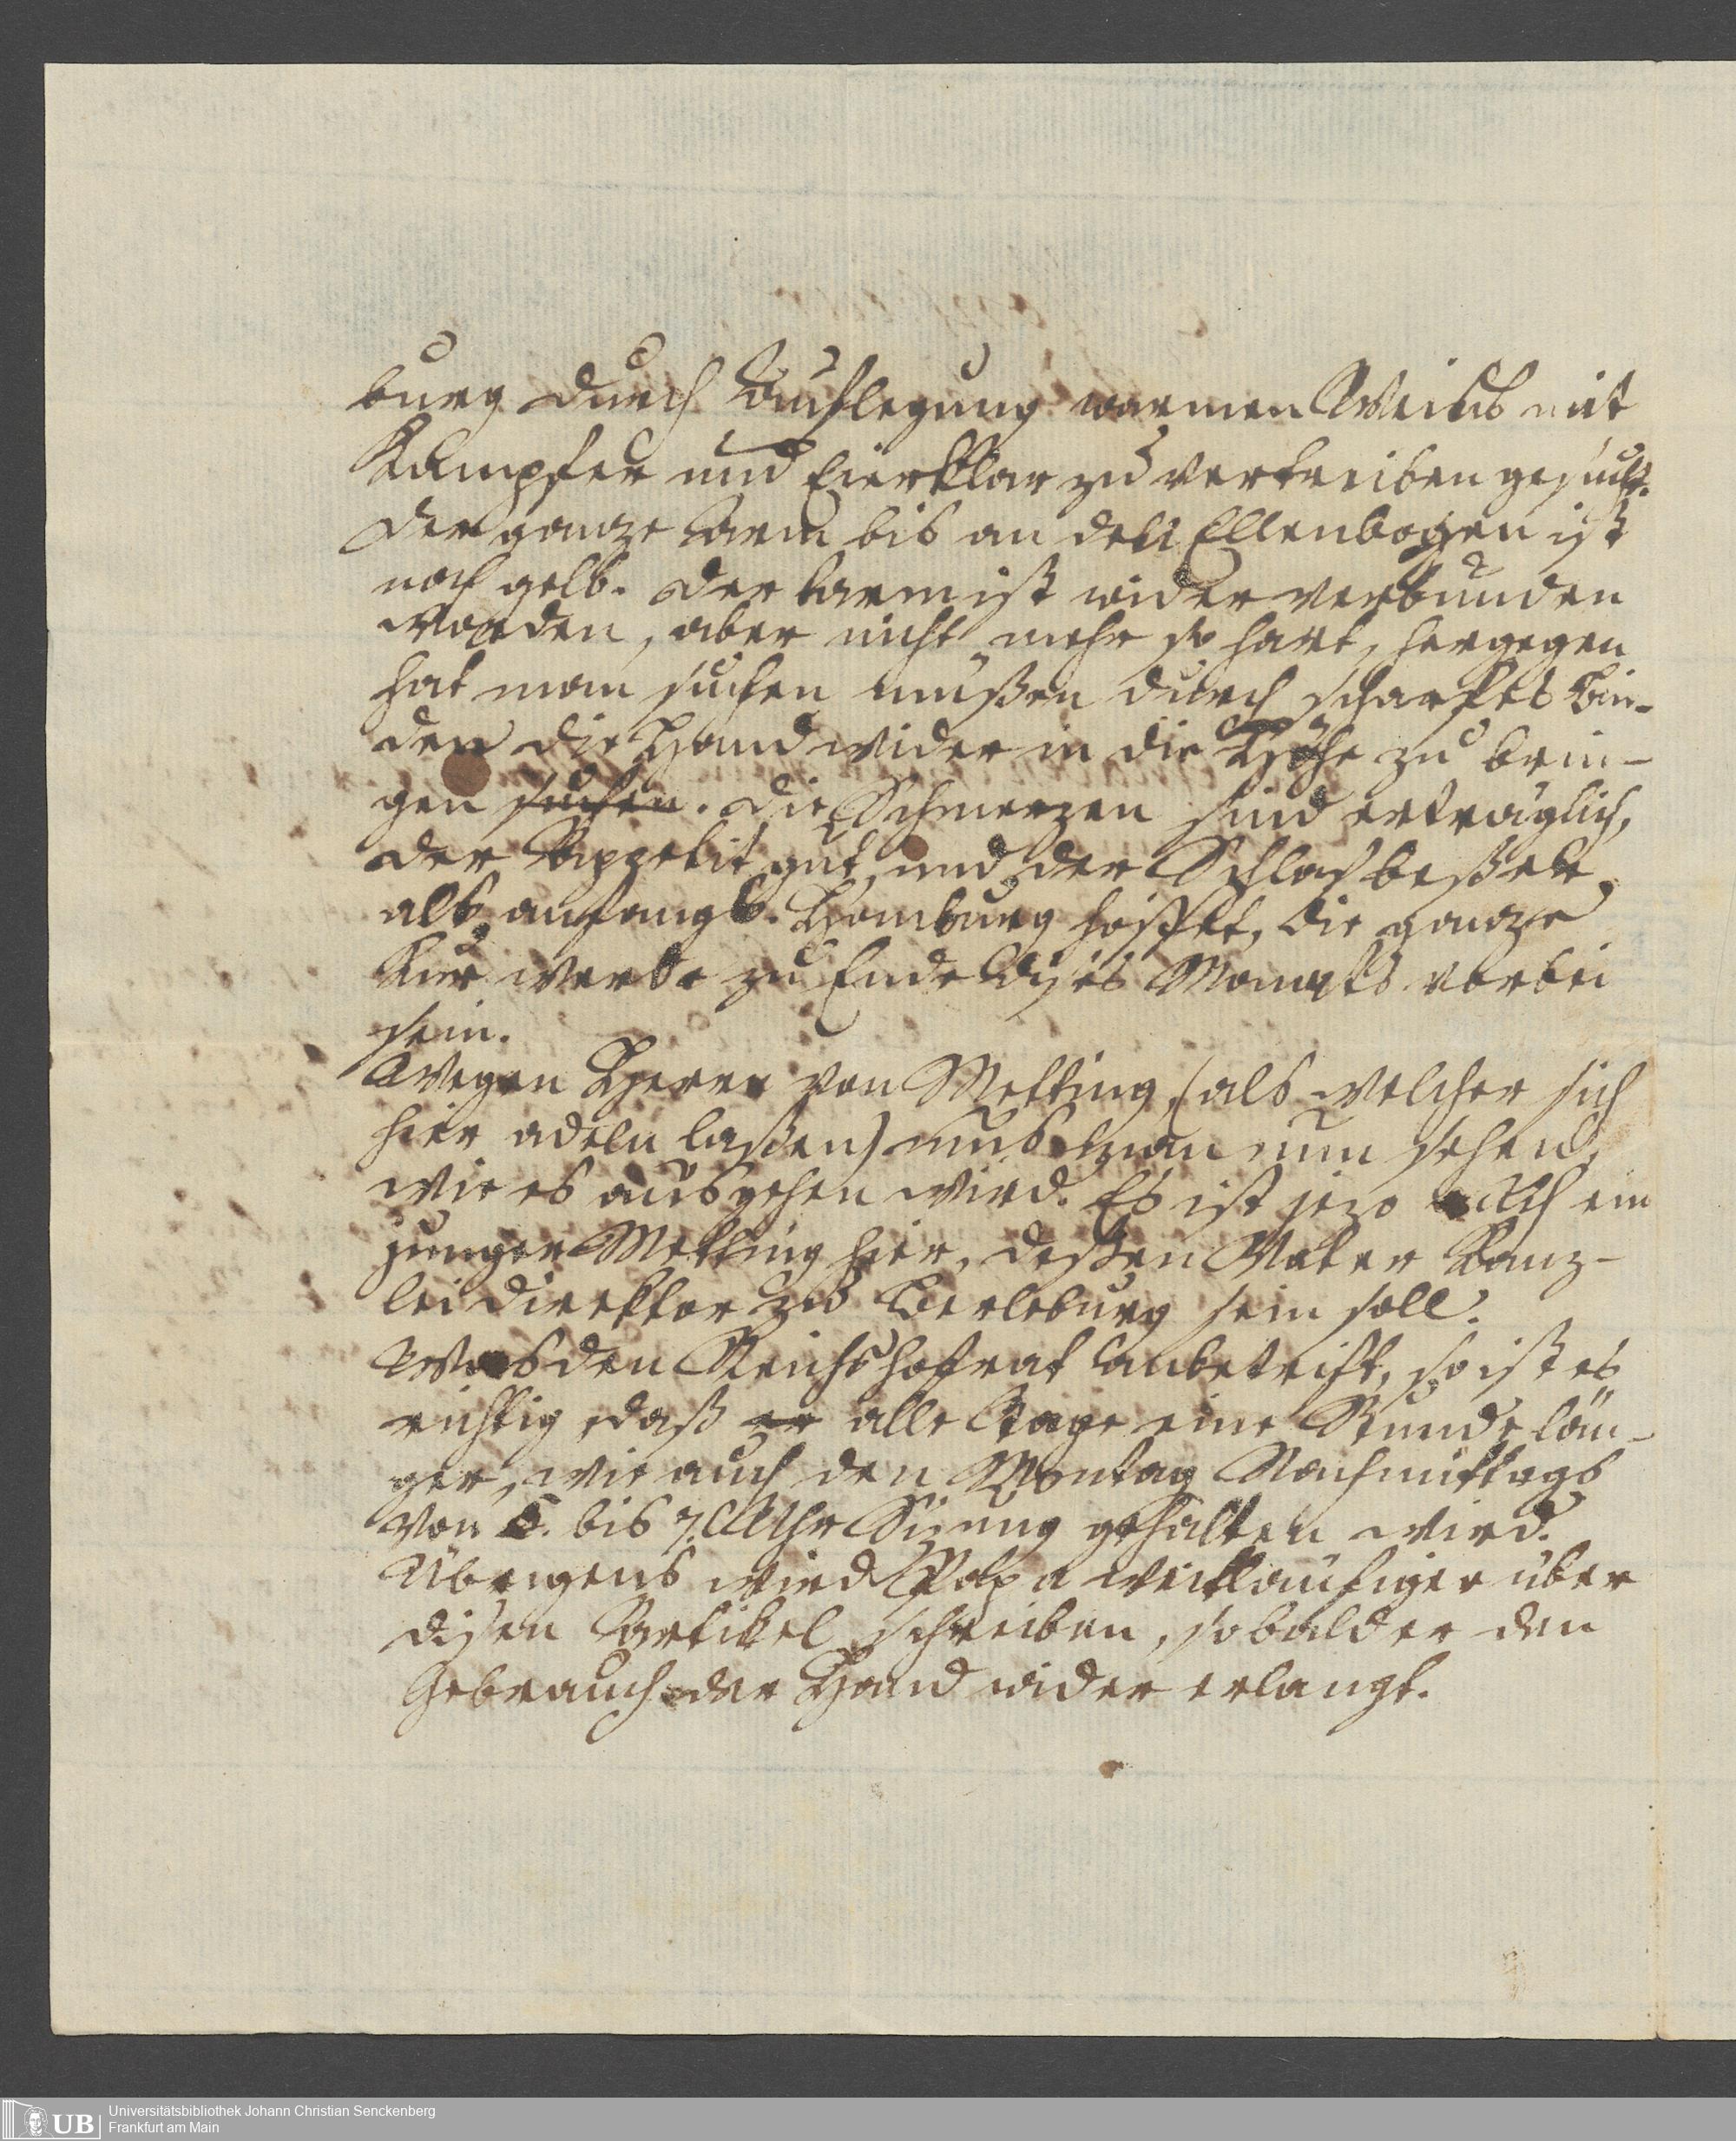 burg durch Auflegung warmen Weins mit
Kampfer und Eierklar zu vertreiben gesucht.
Der ganze Arm bis an den Ellenbogen ist
noch gelb. Der Arm ist wider verbunden
worden, aber nicht mehr so hart, hergegen
hat man suchen müßen durch scharfes Bin-
den die Hand wider in die Höhe zu brin-
gen suchen. Die Schmerzen sind erträglich,
der Appetit gut, und der Schlaf beßer,
als anfangs. Homburg hoffet, die ganze
Kur werde zu Ende dises Monats vorbei
sein.
Wegen Herrn von Metting, (als welcher sich
hier adeln laßen) mus man nun sehen,
wie es ausgehen wird. Es ist jezo auch ein
junger Metting hier, deßen Vater Kanz-
leidirektor zu Berleburg sein soll.
Was den Reichshofrat anbetrift, so ist es
richtig, daß er alle Tage eine Stunde län-
ger, wie auch den Montag Nachmittags
von 5. bis 7. Uhr Sizung gehalten wird.
Übrigens wird Papa weitläufiger über
disen Artikel schreiben, sobald er den
Gebrauch der Hand wider erlangt.
Universitätsbibliothek Johann Christian Senckenberg
Frankfurt am Main
UB